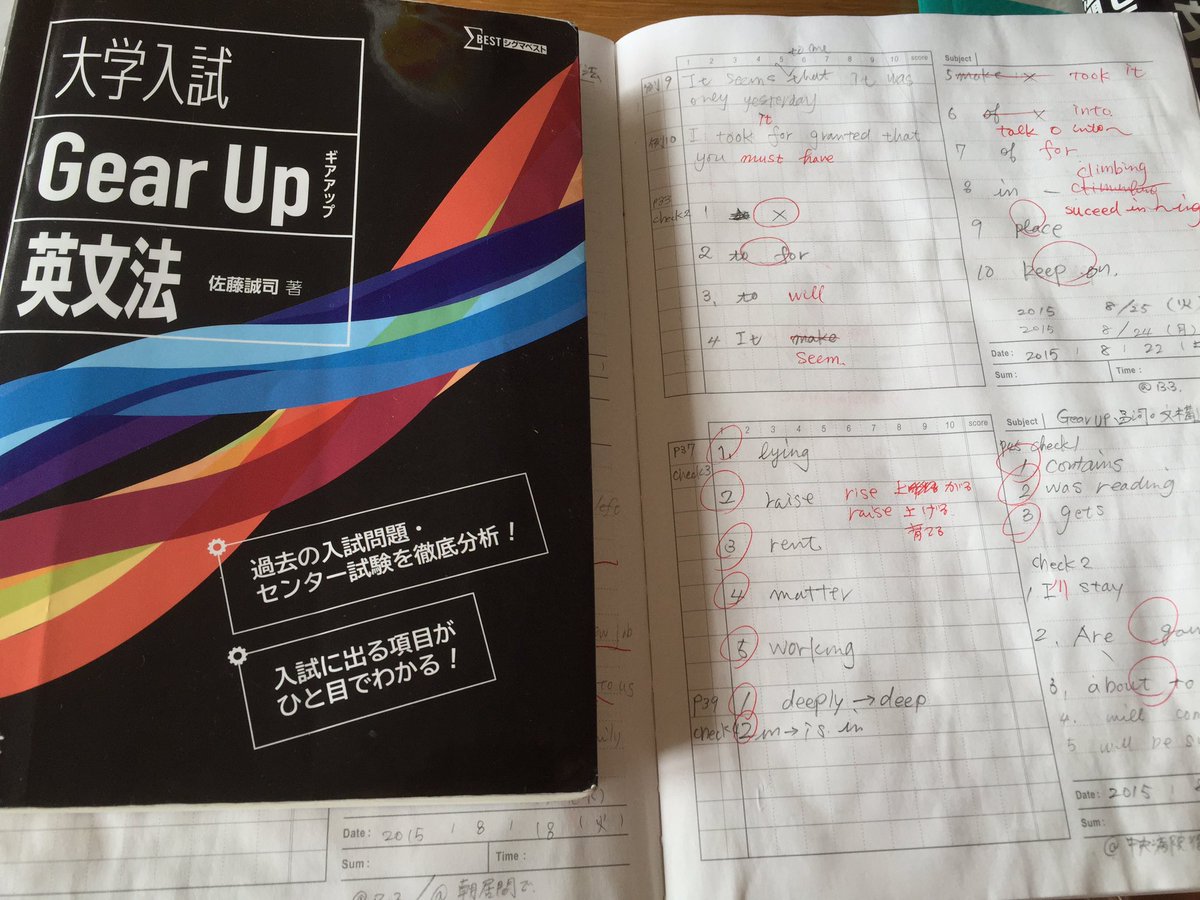 BEST シグマベスト
大学入試
Gear Up
ギアアップ
英文法
佐藤誠司 著
過去の入試問題・
センター試験を徹底分析！
入試に出る項目が
ひと目でわかる！
1 2 3 4 5 6 7 8 9 10 score
to me
9 It seems that it was
only yesterday
it
10 I took for granted that
you must have
P33
check2 1 to ×
2 to for
3, to will
4 It make
seem.
Subject
5 make × took it
6 of × into
talk 0 into
7 of for
climbing
8 in – climbing
suceed in ~ing
9 place
10 keep on.
2015 8/25 (火
2015 8/24 (月)
Date: 2015 8 22
Sum: Time:
@B.3.
1 2 3 4 5 6 7 8 9 10 score
P37 1. lying
check3
2 raise rise 上がる
raise 上げる
育てる
3 rent
4 matter
5 working
P39 1 deeply → deep
check 2 in → is in
Subject Gear Up
P45 check1
1 contains
2 was reading
3 gets
check2
1 I'll stay
2. Are
3, about to
4. will
5 will be
Date: 2015
Sum:
Date: 2015 8 18 (火)
Sum: Time: